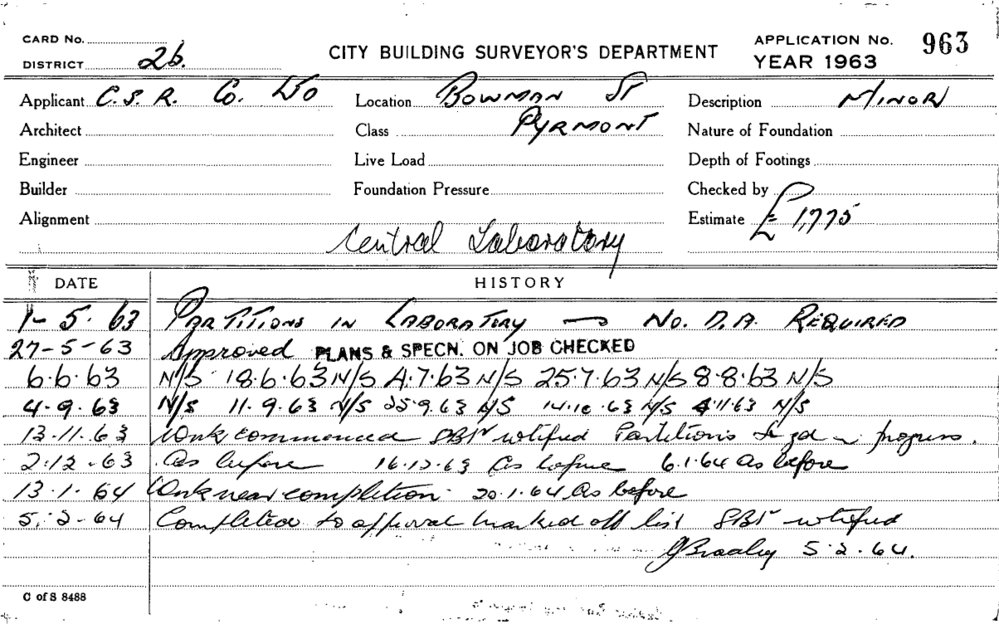 CARD No. CITY BUILDING SURVEYOR'S DEPARTMENT APPLICATION No. 963
DISTRICT 2b. YEAR 1963
Applicant C.S.R. Co. Location BOWMAN ST Description MINOR
Architect Class PYRMONT Nature of Foundation
Engineer Live Load Depth of Footings
Builder Foundation Pressure Checked by
Alignment Estimate £ 1,775
Central Laboratory
DATE HISTORY
1-5.63 PARTITIONS IN LABORATORY — NO. D.A. REQUIRED
27-5-63 Approved PLANS & SPECN. ON JOB CHECKED
6.6.63 N/S 18.6.63 N/S 4.7.63 N/S 25.7.63 N/S 8.8.63 N/S
4.9.63 N/S 11.9.63 N/S 25.9.63 N/S 14.10.63 N/S 4.11.63 N/S
13.11.63 Work commenced notified Partitions progress.
2.12.63 As before 16.12.63 As before 6.1.64 As before
13.1.64 Work near completion. 20.1.64 As before
5.2.64 Completed to approval marked off list notified
5.2.64.
C of S 8488